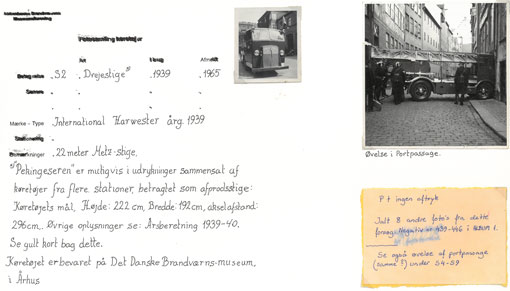 Art
I brug
Afmeldt
S2 Drejestige *) 1939 1965
Mærke - Type International Harwester årg 1939
Stationering
Bemærkninger 22 meter Metz-stige,
*) "Pekingeseren" er muligvis i udrykninger sammensat af
køretøjer fra flere stationer, betragtet som afprodsstige:
Køretøjets mål, Højde: 222 cm, Bredde: 192 cm, akselafstand:
296cm. Øvrige oplysninger se: Årsberetning 1939-40.
Se gult kort bag dette.
Køretøjet er bevaret på Det Danske Brandværns-museum,
i Århus
Øvelse i Portpassage.
P t ingen aftryk
Ialt 8 andre foto's fra dette
forsøg. Negativ nr 439-446 i ALBUM 1.
Se også øvelse af portpassage
(samme?) under S4-S9